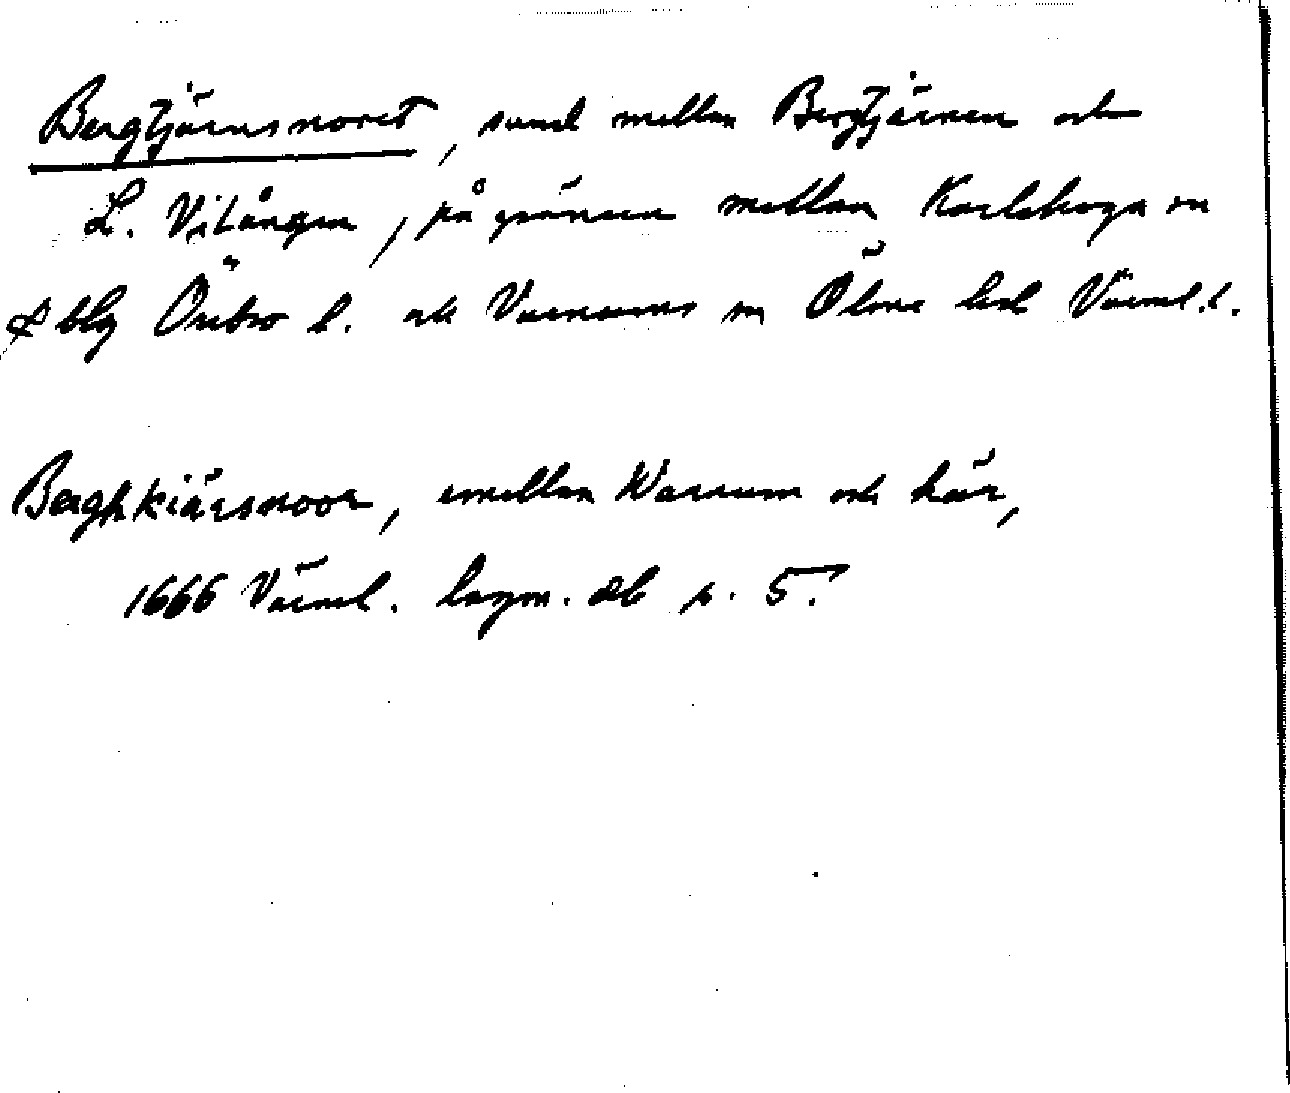 Bergtjärnsnoret, sund mellan Bergtjärnen och
L. Vitången, på gränsen mellan Karlskoga sn
& blg Örebro l. och Varnums sn Ölme hd Värml. l.
Berghkiärsnoor, emellan Warnum och här,
1666 Värml. lagm. db p. 5.